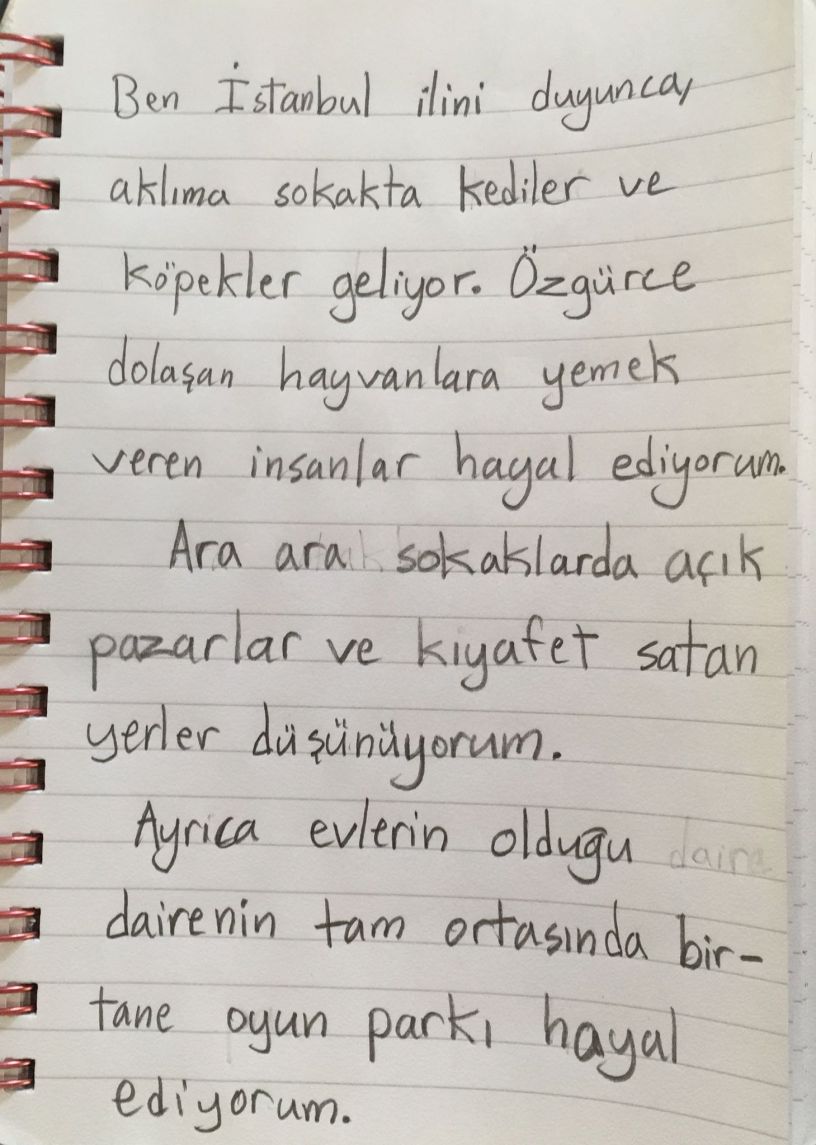 Ben İstanbul ilini duyunca,
aklıma sokakta kediler ve
köpekler geliyor. Özgürce
dolaşan hayvanlara yemek
veren insanlar hayal ediyorum.
Ara ara sokaklarda açık
pazarlar ve kıyafet satan
yerler düşünüyorum.
Ayrıca evlerin olduğu
dairenin tam ortasında bir-
tane oyun parkı hayal
ediyorum.